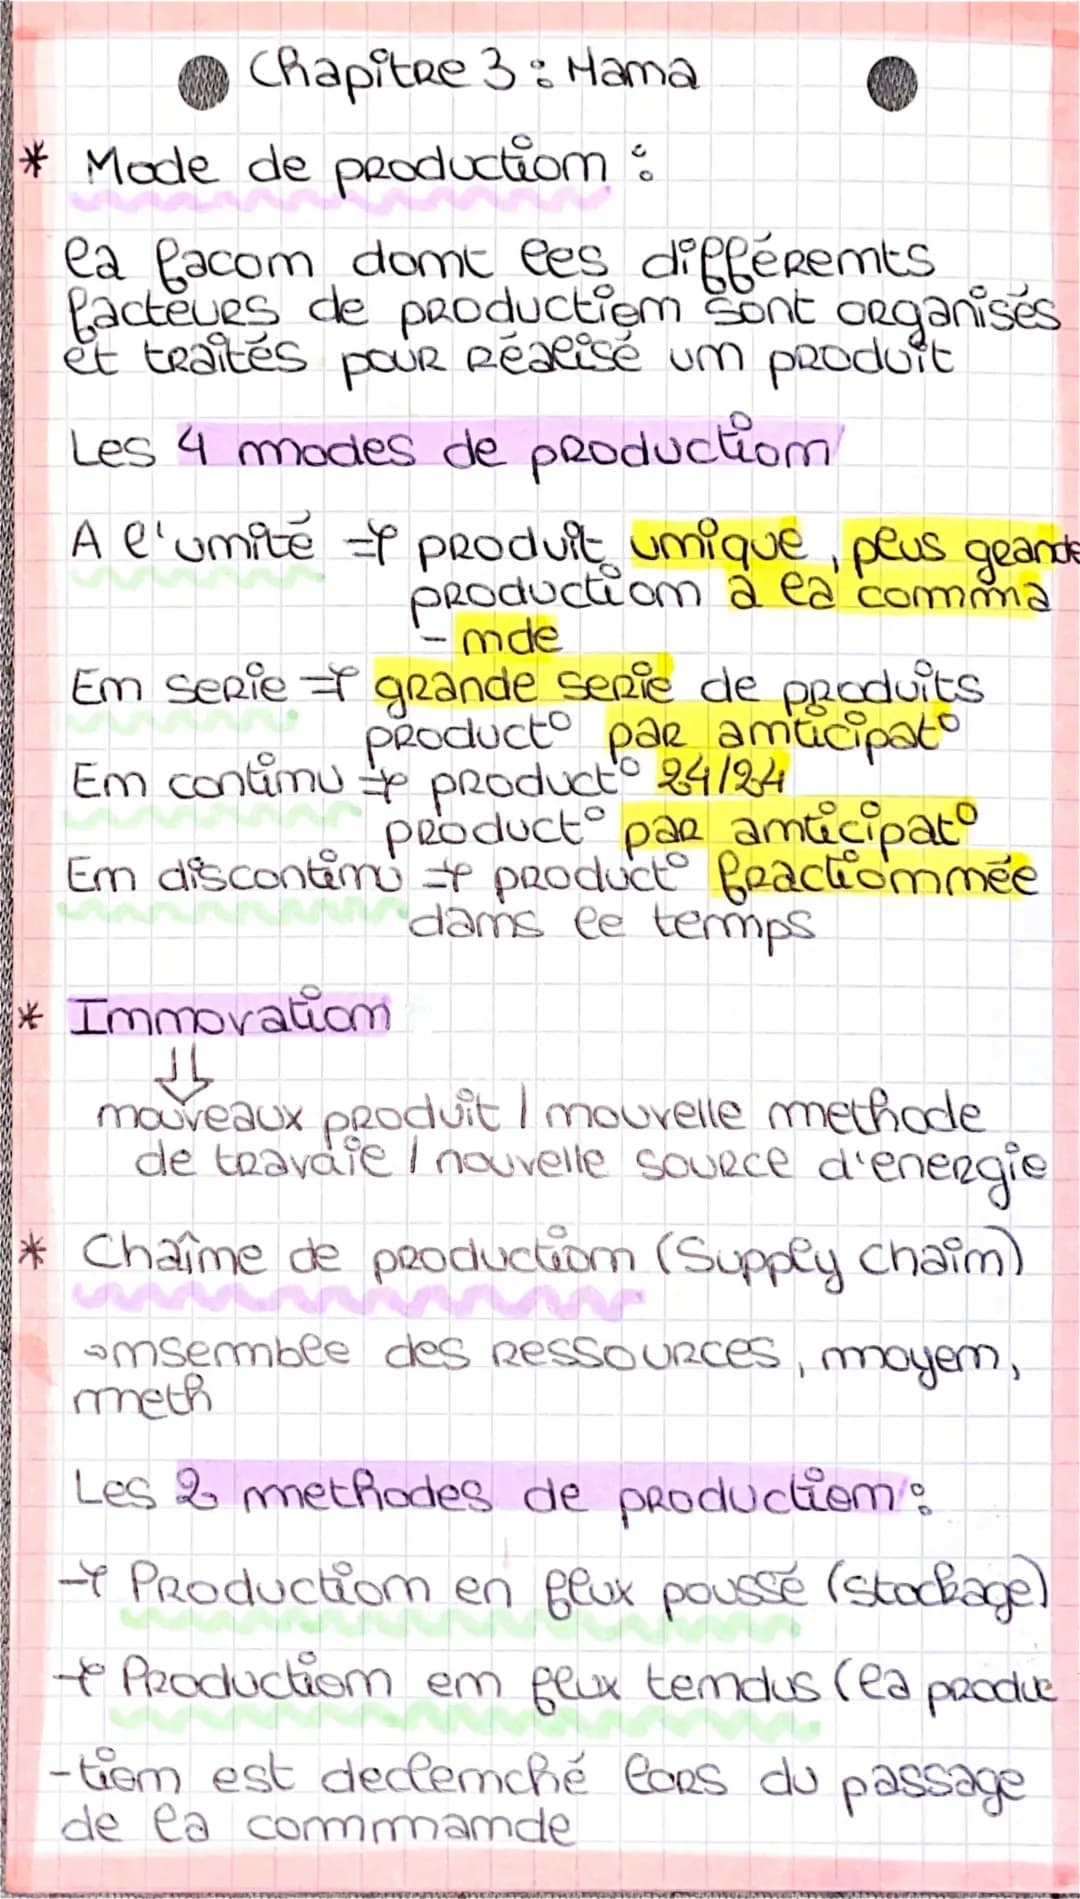 Chapitre 3 : Mana
* Mode de production :
la façon dont les différents
facteurs de production sont organisés
et traités pour réalisé un produit
Les 4 modes de production
A l'unité => produit unique, plus grande
production à la comma
- nde
En serie => grande serie de produits
product° par anticipat°
En continu => product° 24/24
product° par anticipat°
En discontinu => product° fractionnée
dans le temps
* Innovation
⇓
nouveaux produit / nouvelle methode
de travail / nouvelle source d'energie
* Chaîne de production (Supply chain)
ensemble des ressources, moyen,
meth
Les 2 methodes de production :
→ Production en flux poussé (stockage)
→ Production en flux tendus (la produc
-tion est declenché lors du passage
de la commande